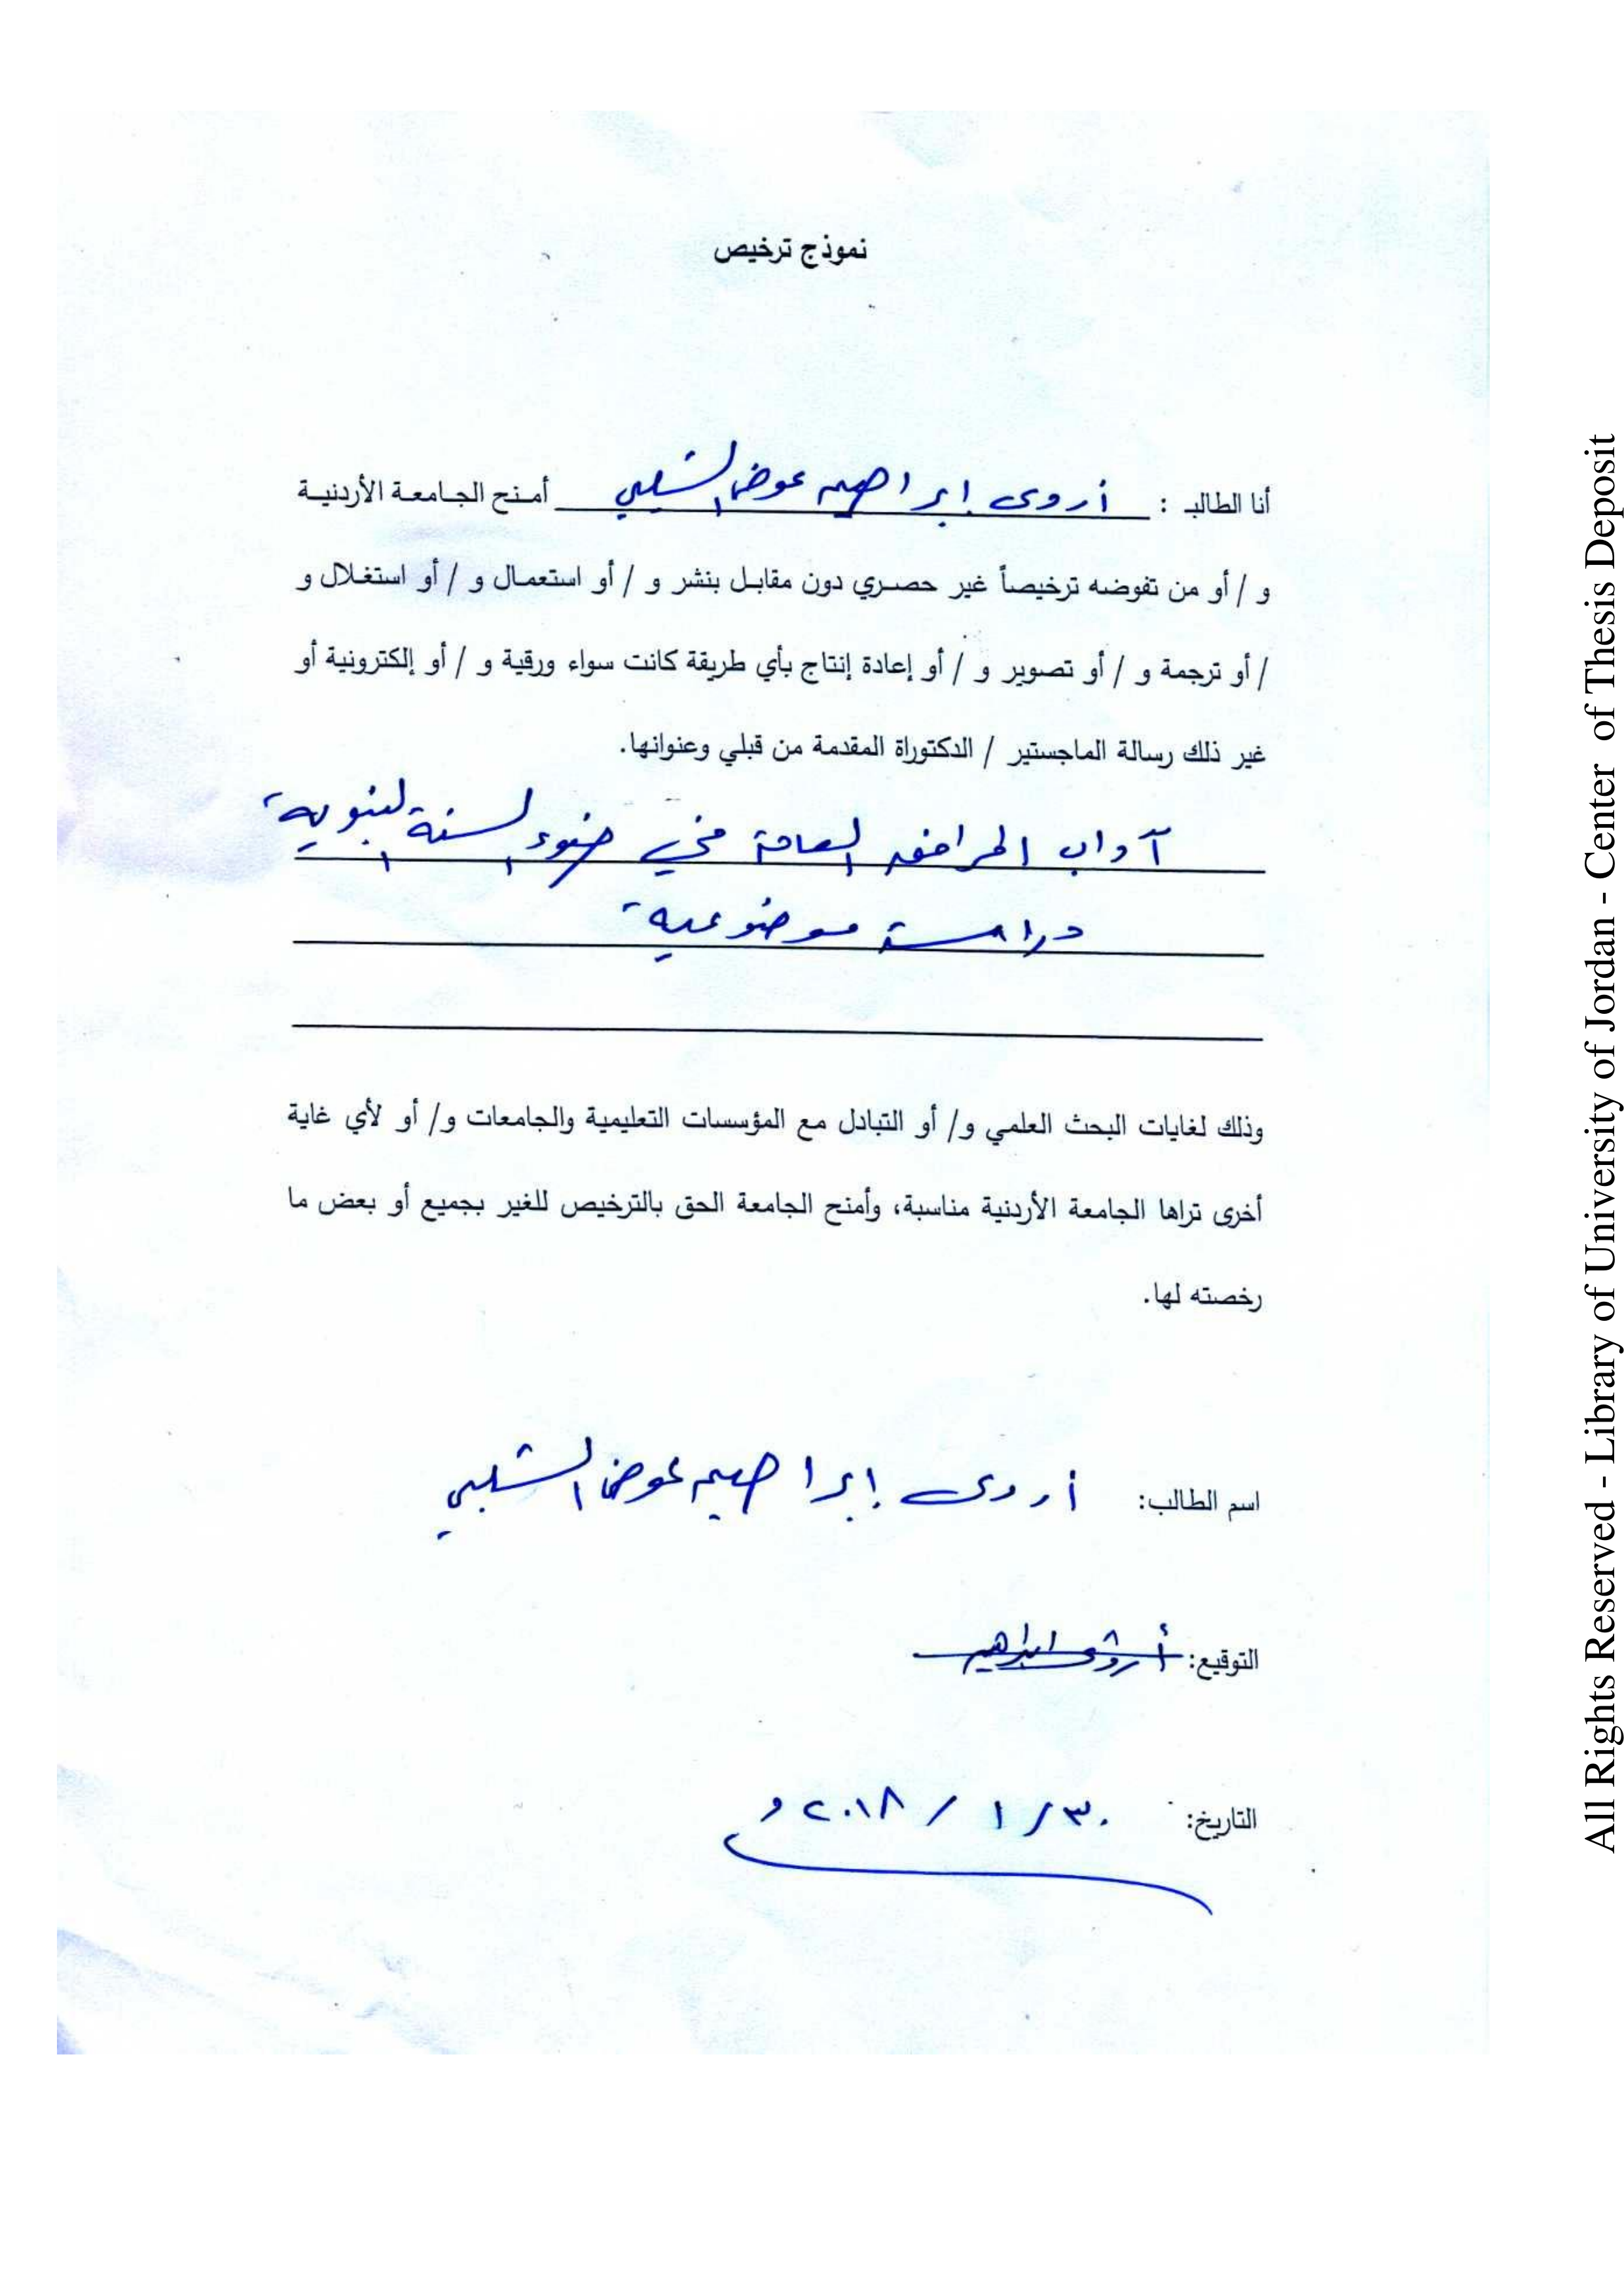 نموذج ترخيص
أنا الطالب : أروى إبراهيم عوض الشلبي أمنح الجامعة الأردنية
و / أو من تفوضه ترخيصاً غير حصري دون مقابل بنشر و / أو استعمال و / أو استغلال و
/ أو ترجمة و / أو تصوير و / أو إعادة إنتاج بأي طريقة كانت سواء ورقية و / أو إلكترونية أو
غير ذلك رسالة الماجستير / الدكتوراة المقدمة من قبلي وعنوانها.
آداب المرافق العامة في ضوء السنة النبوية
دراسة موضوعية
وذلك لغايات البحث العلمي و/ أو التبادل مع المؤسسات التعليمية والجامعات و/ أو لأي غاية
أخرى تراها الجامعة الأردنية مناسبة، وأمنح الجامعة الحق بالترخيص للغير بجميع أو بعض ما
رخصته لها.
اسم الطالب: أروى إبراهيم عوض الشلبي
التوقيع: أروى ابراهيم
التاريخ: ٣٠ / ١ / ٢٠١٨ م
All Rights Reserved - Library of University of Jordan - Center of Thesis Deposit